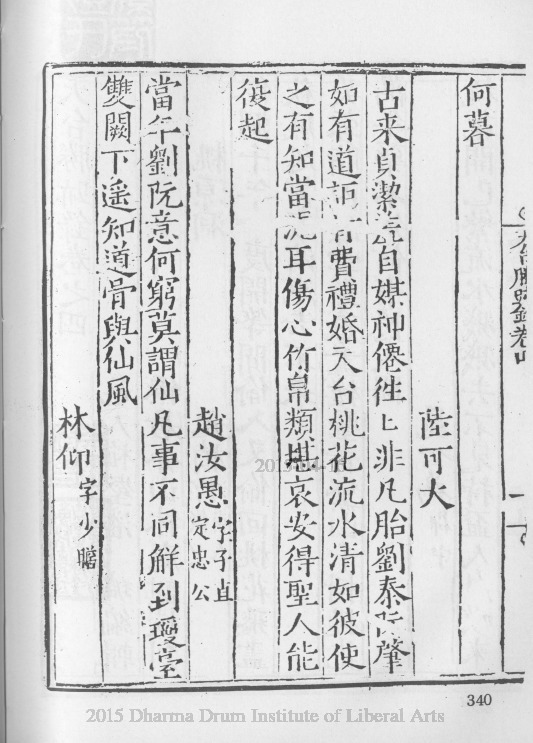 天台勝蹟錄卷四
何暮
陸可大
古来貞潔羞自媒神僊徃匕非凡胎劉秦 肇
如有道詎 有費禮婚天台桃花流水清如彼使
之有知當 耳傷心竹帛類堪哀安得聖人能
復起
趙汝愚字子直定忠公
當年劉阮意何窮莫謂仙凡事不同解到瓊臺
雙闕下遥知道骨與仙風
林仰字少瞻
340
2015 Dharma Drum Institute of Liberal Arts